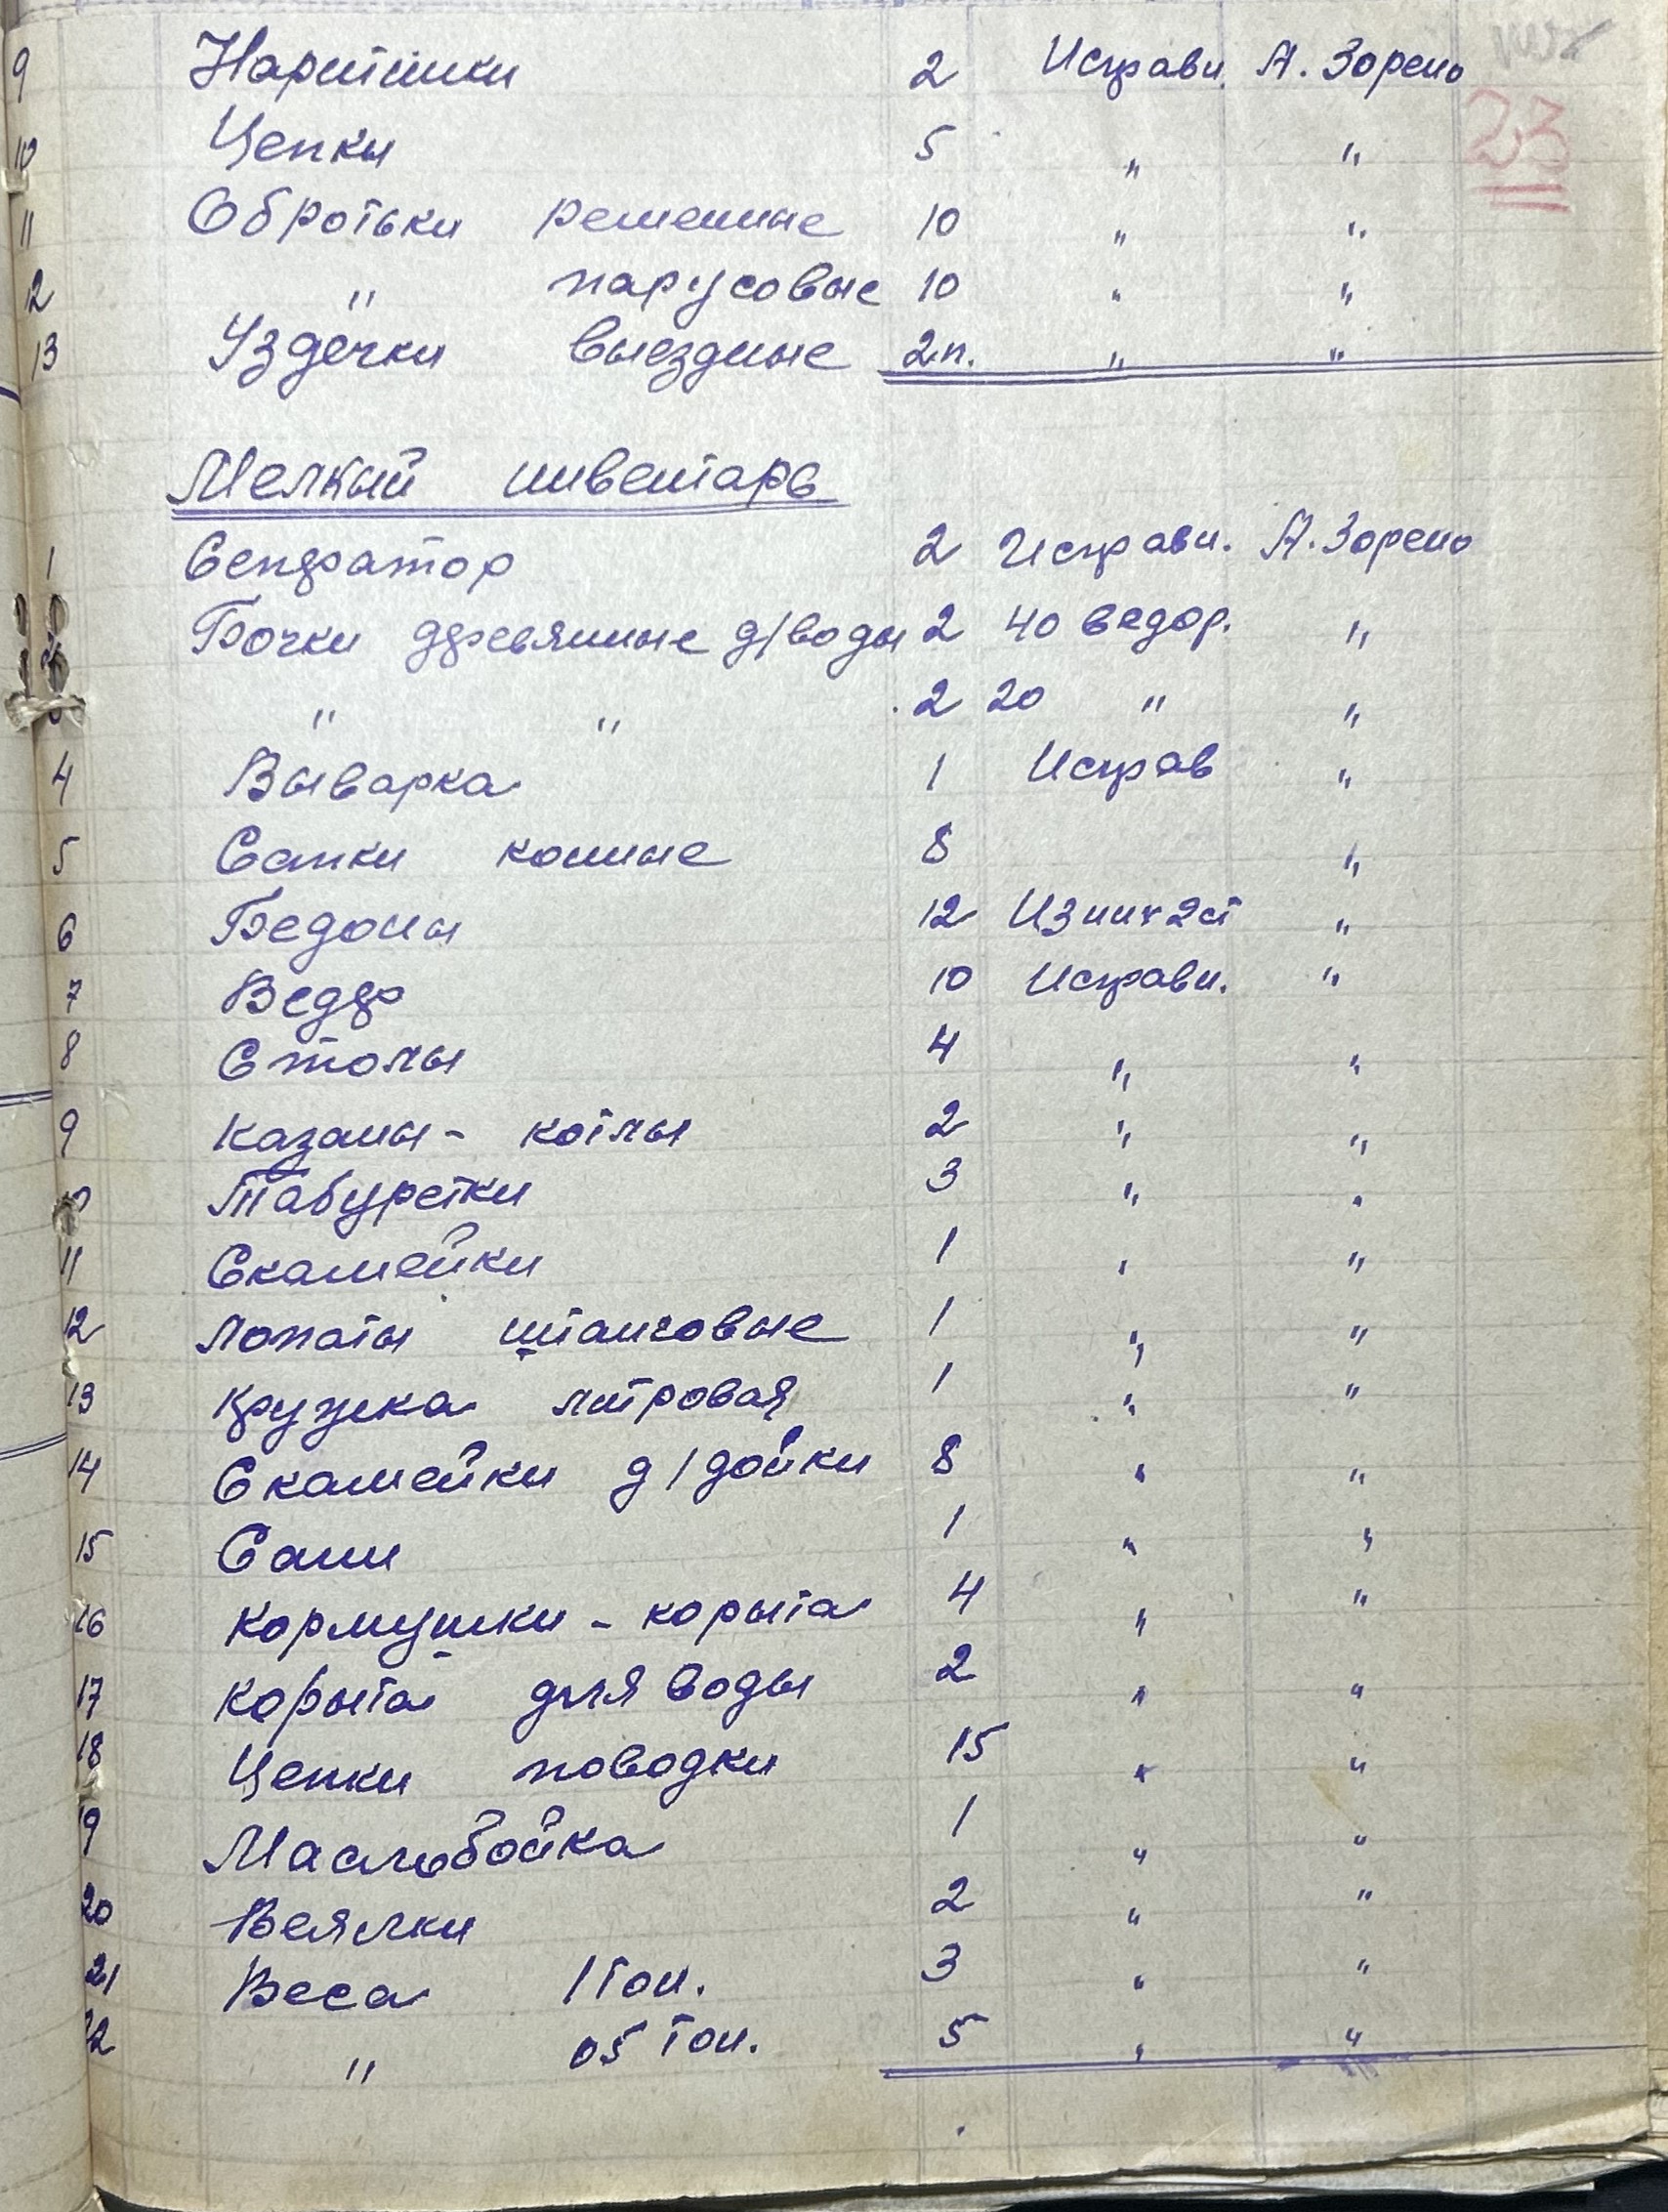 23
9 Наритики 2 Исправн. А. Зорено
10 Цепки 5 " "
11 Обротьки ременные 10 " "
12 " парусовые 10 " "
13 Уздечки выездные 2п. " "
Мелкий инвентарь
1 Сепратор 2 Исправн. А. Зорено
2 Бочки деревянные д/воды 2 40 ведор. "
3 " " 2 20 " "
4 Выварка 1 Исправ "
5 Сапки конные 8 "
6 Бедоны 12 Из них 2 ст "
7 Ведр 10 Исправн. "
8 Столы 4 " "
9 Казаны - котлы 2 " "
10 Табуретки 3 " "
11 Скамейки 1 " "
12 Лопаты штанговые 1 " "
13 Кружка литровая 1 " "
14 Скамейки д/дойки 8 " "
15 Сани 1 " "
16 Кормушки - корыта 4 " "
17 Корыта для воды 2 " "
18 Цепки поводки 15 " "
19 Маслобойка 1 " "
20 Веялки 2 " "
21 Веса 1 тон. 3 " "
22 " 05 тон. 5 " "